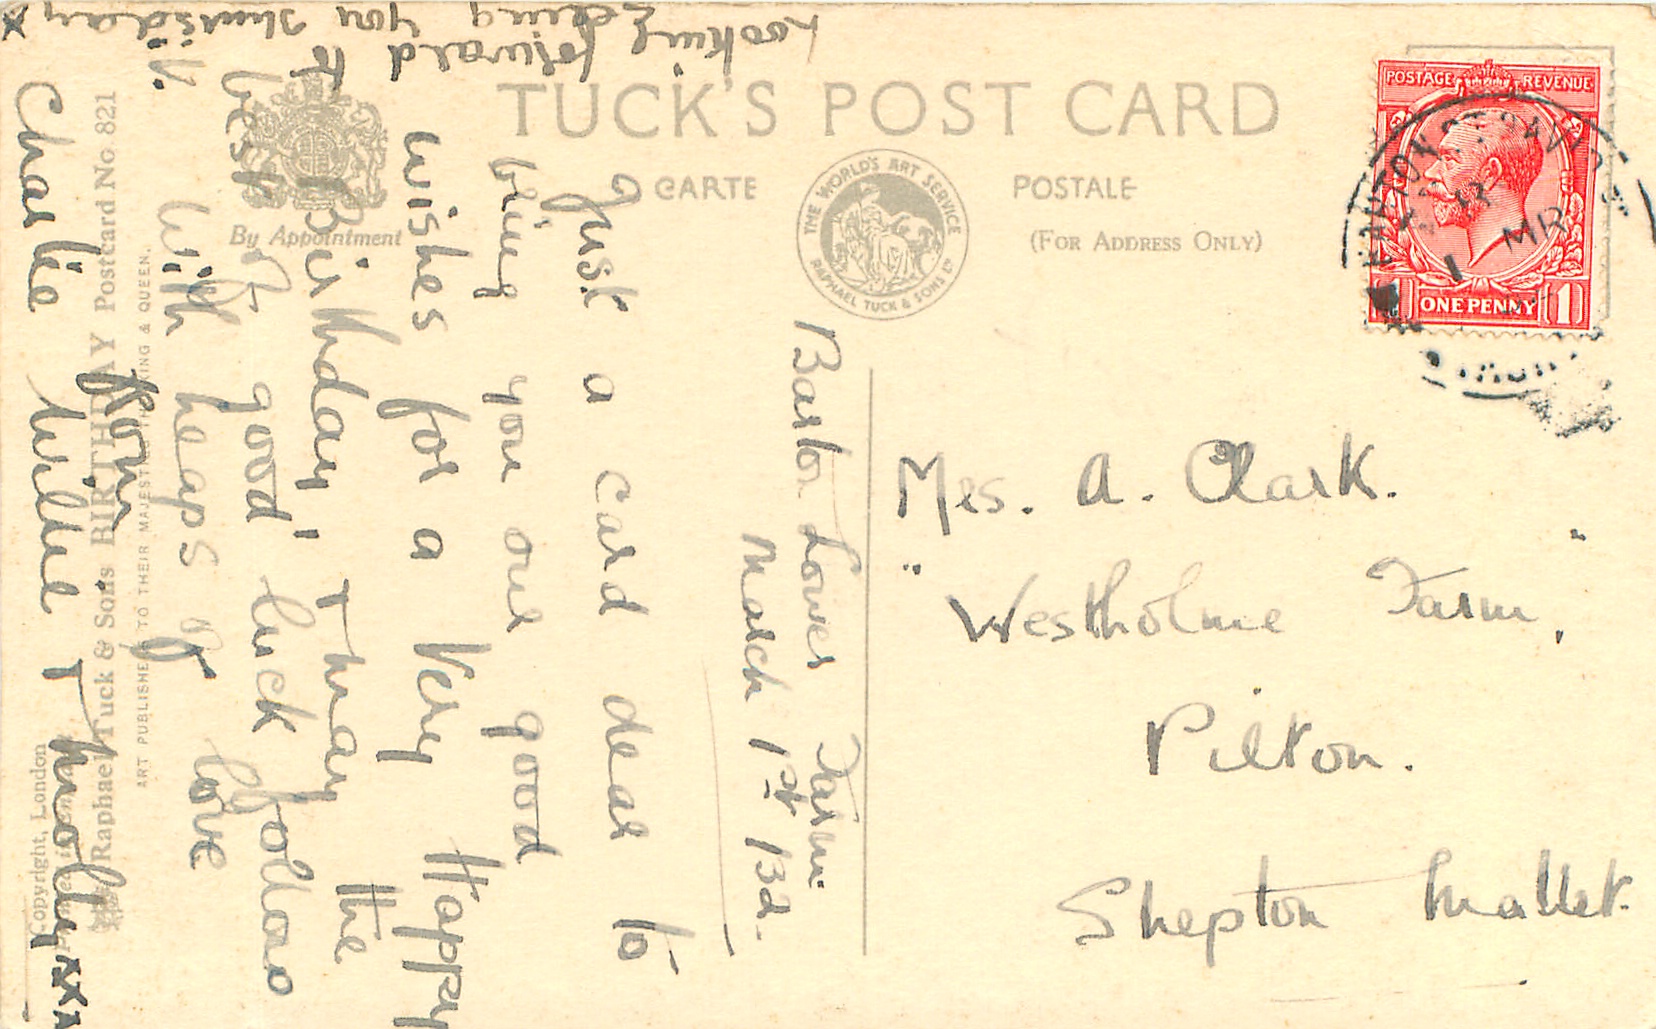 TUCK'S POST CARD
CARTE POSTALE
(FOR ADDRESS ONLY)
THE WORLD'S ART SERVICE
RAPHAEL TUCK & SONS LTD
By Appointment
POSTAGE REVENUE
ONE PENNY
1
MR
1
Mrs. A. Clark.
Westholme Farm,
Pilton.
Shepton Mallet.
Barton Lower Farm
March 1st
Just a card dear to
bring you our good
wishes for a Very Happy
Birthday, & may the
best of good luck follow
with heaps of love
from
Charlie Willie & Molly xxx
Looking forward to
seeing you Thursday
x
Raphael Tuck & Sons BIRTHDAY Postcard No. 821
ART PUBLISHERS TO THEIR MAJESTIES THE KING & QUEEN.
Copyright, London